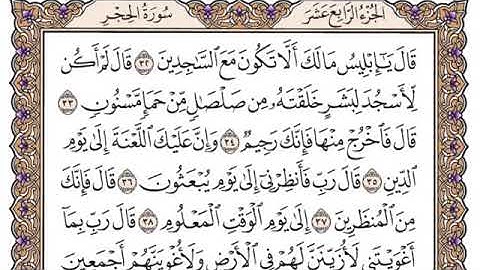 الجزء الرابع عشر
سورة الحجر
قَالَ يَٰٓإِبْلِيسُ مَا لَكَ أَلَّا تَكُونَ مَعَ ٱلسَّٰجِدِينَ ٣٢ قَالَ لَمْ أَكُن
لِّأَسْجُدَ لِبَشَرٍ خَلَقْتَهُۥ مِن صَلْصَٰلٍ مِّنْ حَمَإٍ مَّسْنُونٍ ٣٣
قَالَ فَٱخْرُجْ مِنْهَا فَإِنَّكَ رَجِيمٌ ٣٤ وَإِنَّ عَلَيْكَ ٱللَّعْنَةَ إِلَىٰ يَوْمِ
ٱلدِّينِ ٣٥ قَالَ رَبِّ فَأَنظِرْنِىٓ إِلَىٰ يَوْمِ يُبْعَثُونَ ٣٦ قَالَ فَإِنَّكَ
مِنَ ٱلْمُنظَرِينَ ٣٧ إِلَىٰ يَوْمِ ٱلْوَقْتِ ٱلْمَعْلُومِ ٣٨ قَالَ رَبِّ بِمَآ
أَغْوَيْتَنِى لَأُزَيِّنَنَّ لَهُمْ فِى ٱلْأَرْضِ وَلَأُغْوِيَنَّهُمْ أَجْمَعِينَ